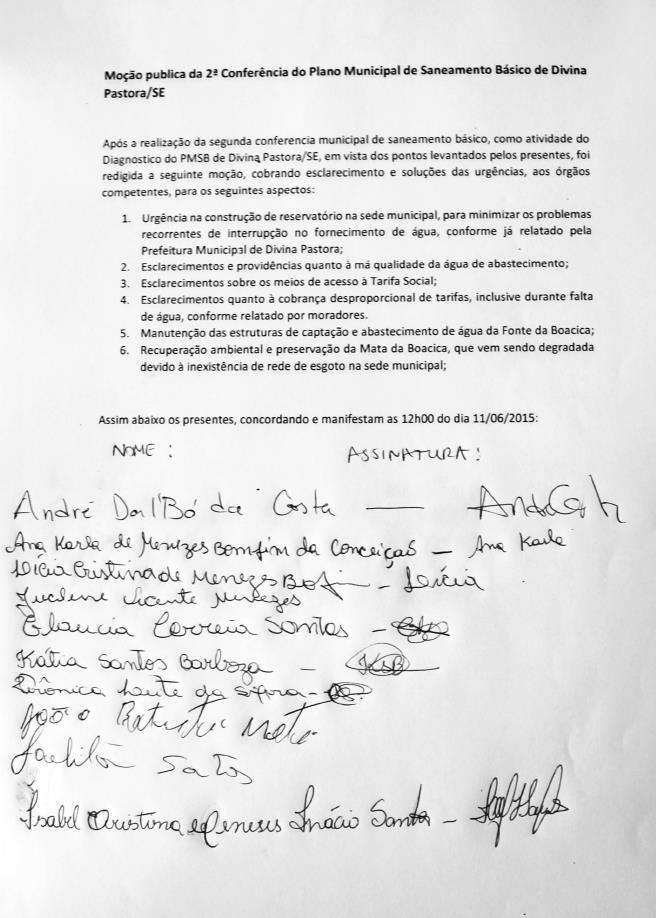 Moção publica da 2ª Conferência do Plano Municipal de Saneamento Básico de Divina
Pastora/SE
Após a realização da segunda conferencia municipal de saneamento básico, como atividade do
Diagnostico do PMSB de Divina Pastora/SE, em vista dos pontos levantados pelos presentes, foi
redigida a seguinte moção, cobrando esclarecimento e soluções das urgências, aos órgãos
competentes, para os seguintes aspectos:
1. Urgência na construção de reservatório na sede municipal, para minimizar os problemas
recorrentes de interrupção no fornecimento de água, conforme já relatado pela
Prefeitura Municipal de Divina Pastora;
2. Esclarecimentos e providências quanto à má qualidade da água de abastecimento;
3. Esclarecimentos sobre os meios de acesso à Tarifa Social;
4. Esclarecimentos quanto à cobrança desproporcional de tarifas, inclusive durante falta
de água, conforme relatado por moradores.
5. Manutenção das estruturas de captação e abastecimento de água da Fonte da Boacica;
6. Recuperação ambiental e preservação da Mata da Boacica, que vem sendo degradada
devido à inexistência de rede de esgoto na sede municipal;
Assim abaixo os presentes, concordando e manifestam as 12h00 do dia 11/06/2015:
NOME : ASSINATURA :
André Dal'Bó da Costa —
Ana Karla de Menezes Bomfim da Conceição — Ana Karla
Cristina de Menezes
Menezes
Glaucia Correia Santos —
Kátia Santos Barboza — KSB
da Silva -
João Batista
Santos
Isabel Cristina Meneses Inácio Santos —